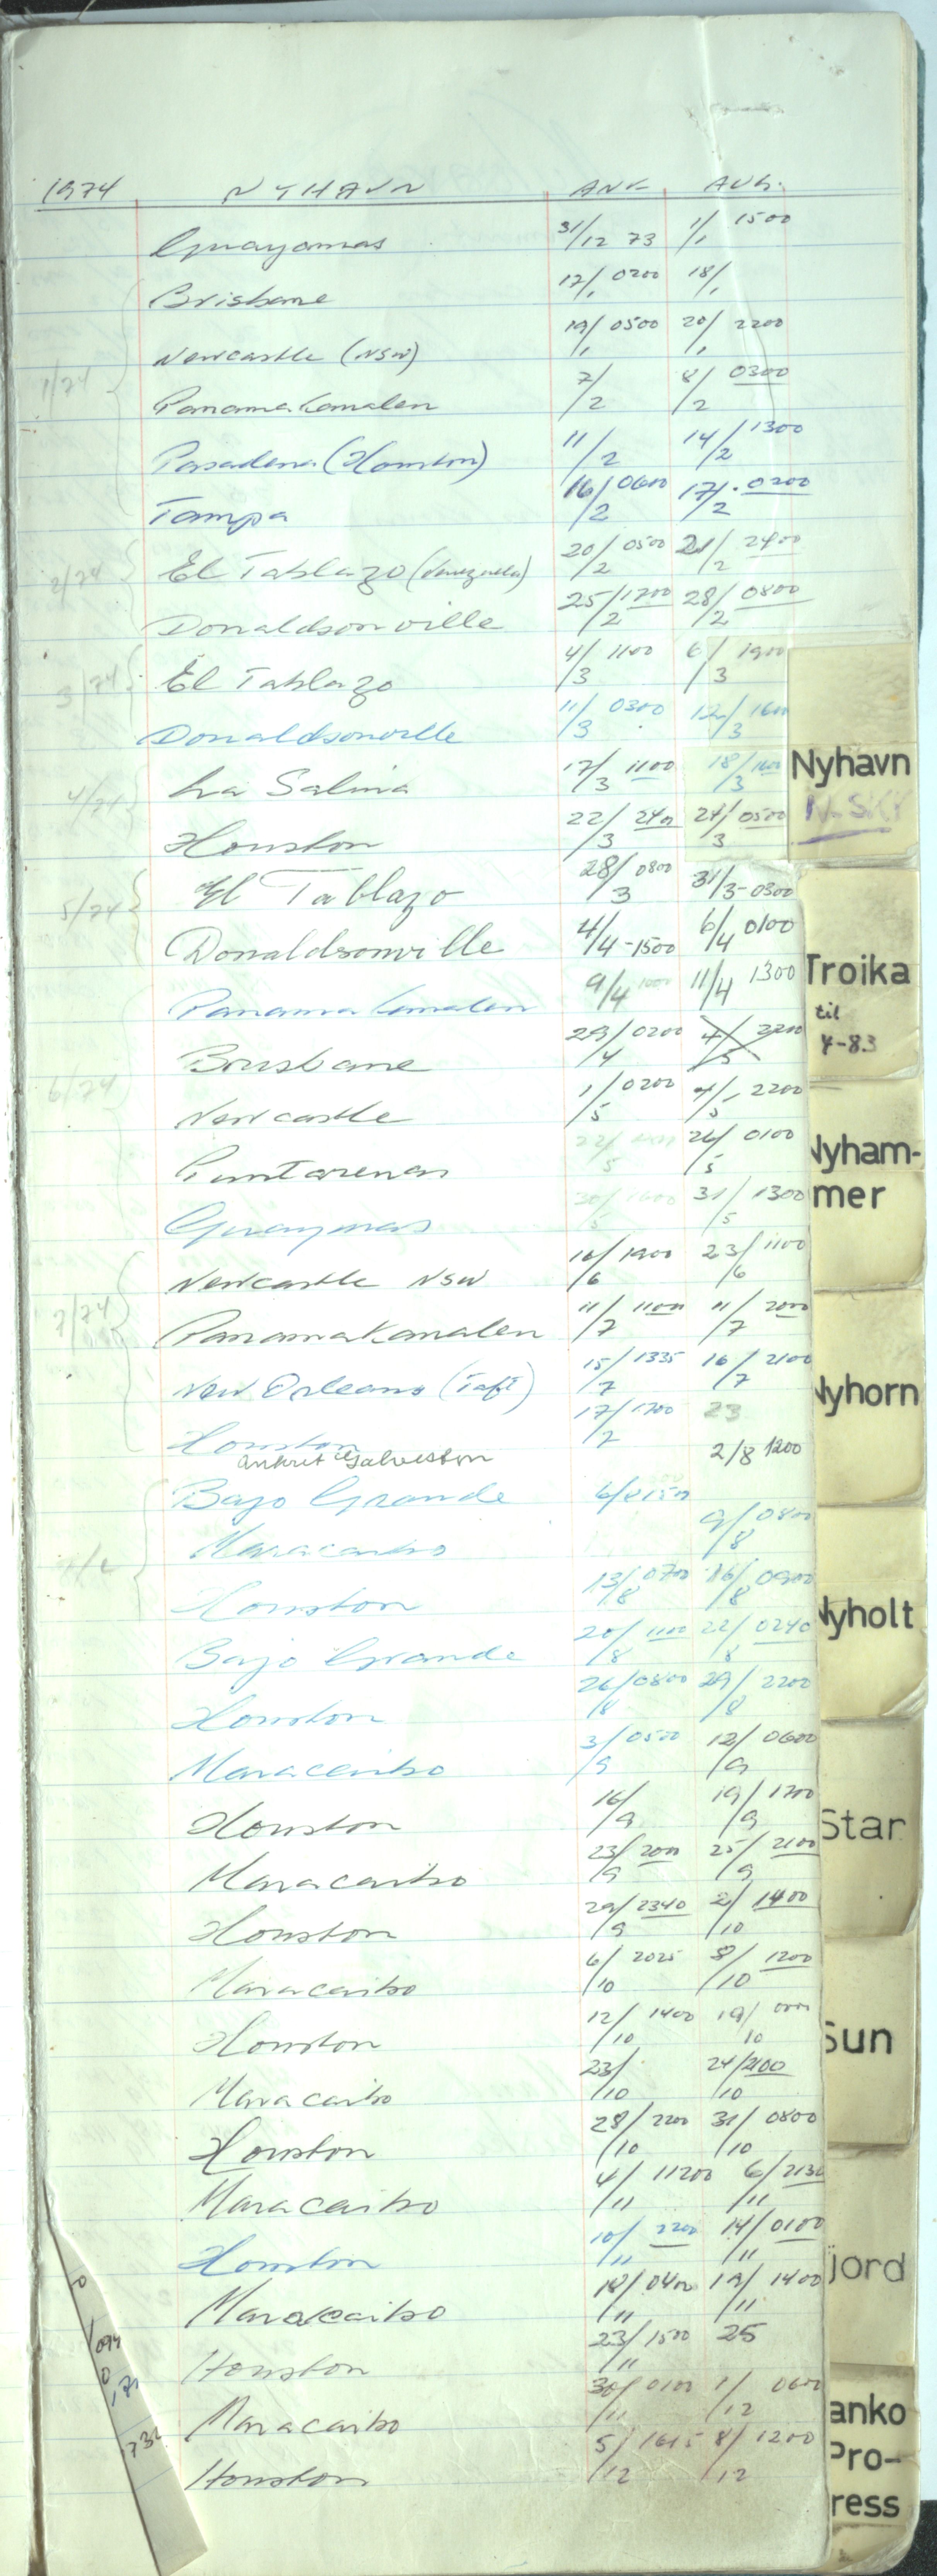 1974 NYHAVN ANK. AVG.
Guayamas 31/12 73 1/1 1500
Brisbane 17/1 0200 18/1
Newcastle (NSW) 19/1 0500 20/1 2200
1/74
Panama Kanalen 7/2 8/2 0300
Pasadena (Houston) 11/2 14/2 1300
Tampa 16/2 0600 17/2 0200
2/74 El Tablazo (Venezuela) 20/2 0500 21/2 2400
Donaldsonville 25/2 1700 28/2 0800
3/74 El Tablazo 4/3 1100 6/3 1900
Donaldsonville 11/3 0300 12/3 1600
4/74 La Salina 17/3 1100 18/3 1600
Houston 22/3 24/3 0500
5/74 El Tablazo 28/3 0800 31/3-0300
Donaldsonville 4/4-1500 6/4 0100
Panama Kanalen 9/4 11/4 1300
Brisbane 29/4 0200 4/5 2200
6/74
Newcastle 1/5 0200 4/5 2200
Puntarenas 26/5 0100
Guaymas 30/5 1600 31/5 1300
Newcastle NSW 16/6 1900 23/6 1100
7/74 Panamakanalen 11/7 1100 11/7 2000
New Orleans (Taft) 15/7 1335 16/7 2100
Houston 17/7 1700 23
ankret Galveston 2/8 1200
Bajo Grande 6/8 1500
Maracaibo 9/8 0800
Houston 13/8 0700 16/8 0900
Bajo Grande 20/8 1100 22/8 0240
Houston 26/8 0800 29/8 2200
Maracaibo 3/9 0500 12/9 0600
Houston 16/9 19/9 1700
Maracaibo 23/9 2000 25/9 2100
Houston 29/9 2340 2/10 1400
Maracaibo 6/10 2025 8/10 1200
Houston 12/10 1400 19/10 0000
Maracaibo 23/10 24/10 2100
Houston 28/10 2200 31/10 0800
Maracaibo 4/11 11200 6/11 2130
Houston 10/11 2200 14/11 0100
Maracaibo 18/11 0400 19/11 1400
Houston 23/11 1500 25
Maracaibo 30/11 0100 1/12 0600
Houston 5/12 1645 8/12 1200
Nyhavn
Troika
til
4-83
Nyham-
mer
Nyhorn
Nyholt
Star
Sun
jord
anko
Pro-
ress